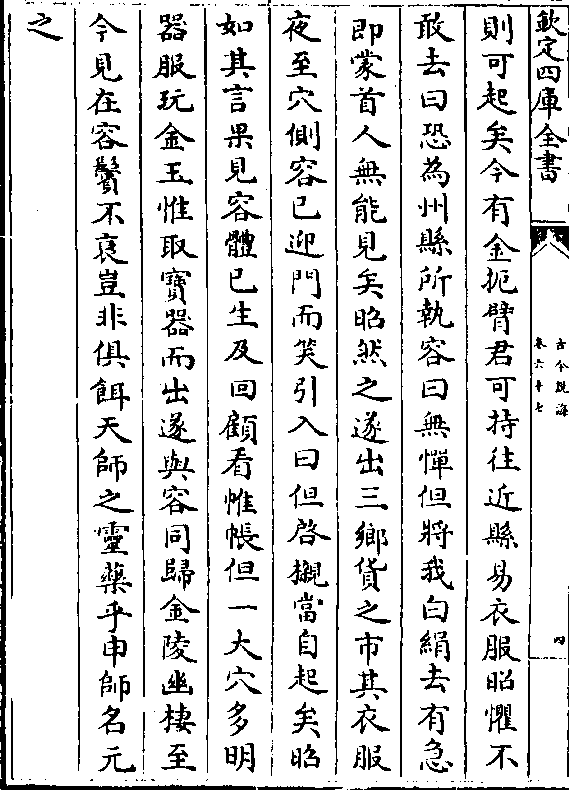 欽定四庫全書
古今説海
卷六十七
四
則可起矣今有金扼臂君可持往近縣易衣服昭懼不
敢去曰恐為州縣所執容曰無憚但將我白絹去有急
即蒙首人無能見矣昭然之遂出三鄉貨之市其衣服
夜至穴側容已迎門而笑引入曰但啓櫬當自起矣昭
如其言果見容體已生及回顧看帷帳但一大穴多明
器服玩金玉惟取寳器而出遂與容同歸金陵幽棲至
今見在容鬢不衰豈非俱餌天師之靈藥乎申師名元
之